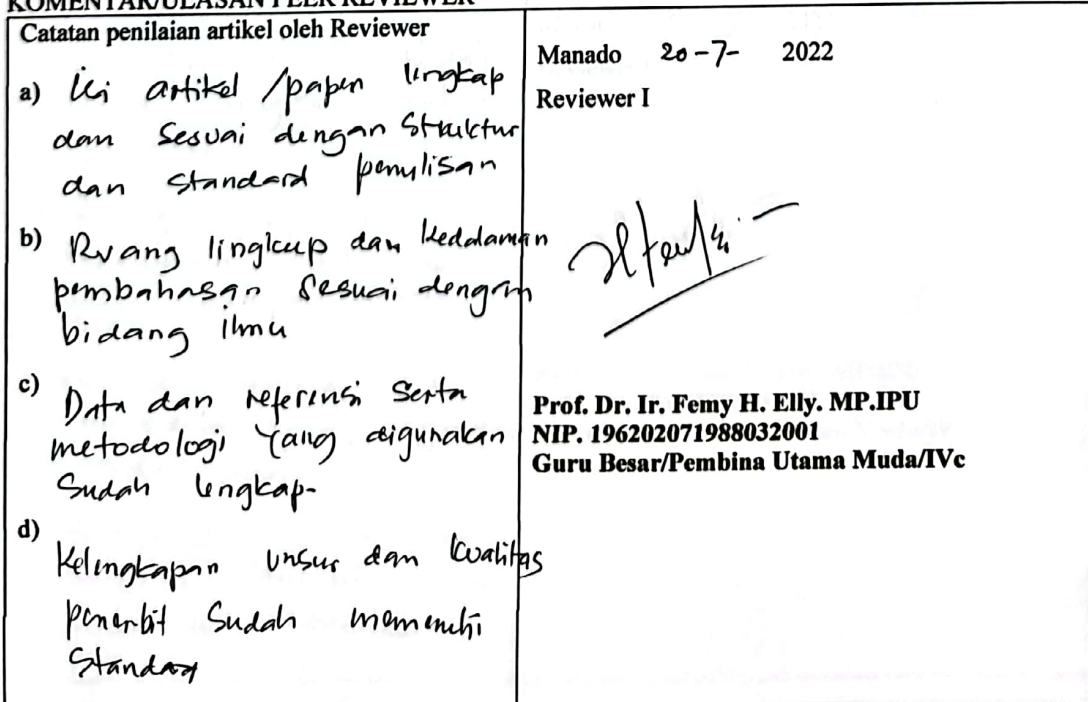 KOMENTAR/ULASAN PEER REVIEWER
Catatan penilaian artikel oleh Reviewer
a) Isi artikel /paper lengkap
dan sesuai dengan struktur
dan standard penulisan
b) Ruang lingkup dan kedalaman
pembahasan sesuai dengan
bidang ilmu
c) Data dan referensi serta
metodologi yang digunakan
sudah lengkap-
d) Kelengkapan unsur dan kualitas
penerbit sudah memenuhi
standar
Manado 20-7- 2022
Reviewer I
Prof. Dr. Ir. Femy H. Elly. MP.IPU
NIP. 196202071988032001
Guru Besar/Pembina Utama Muda/IVc